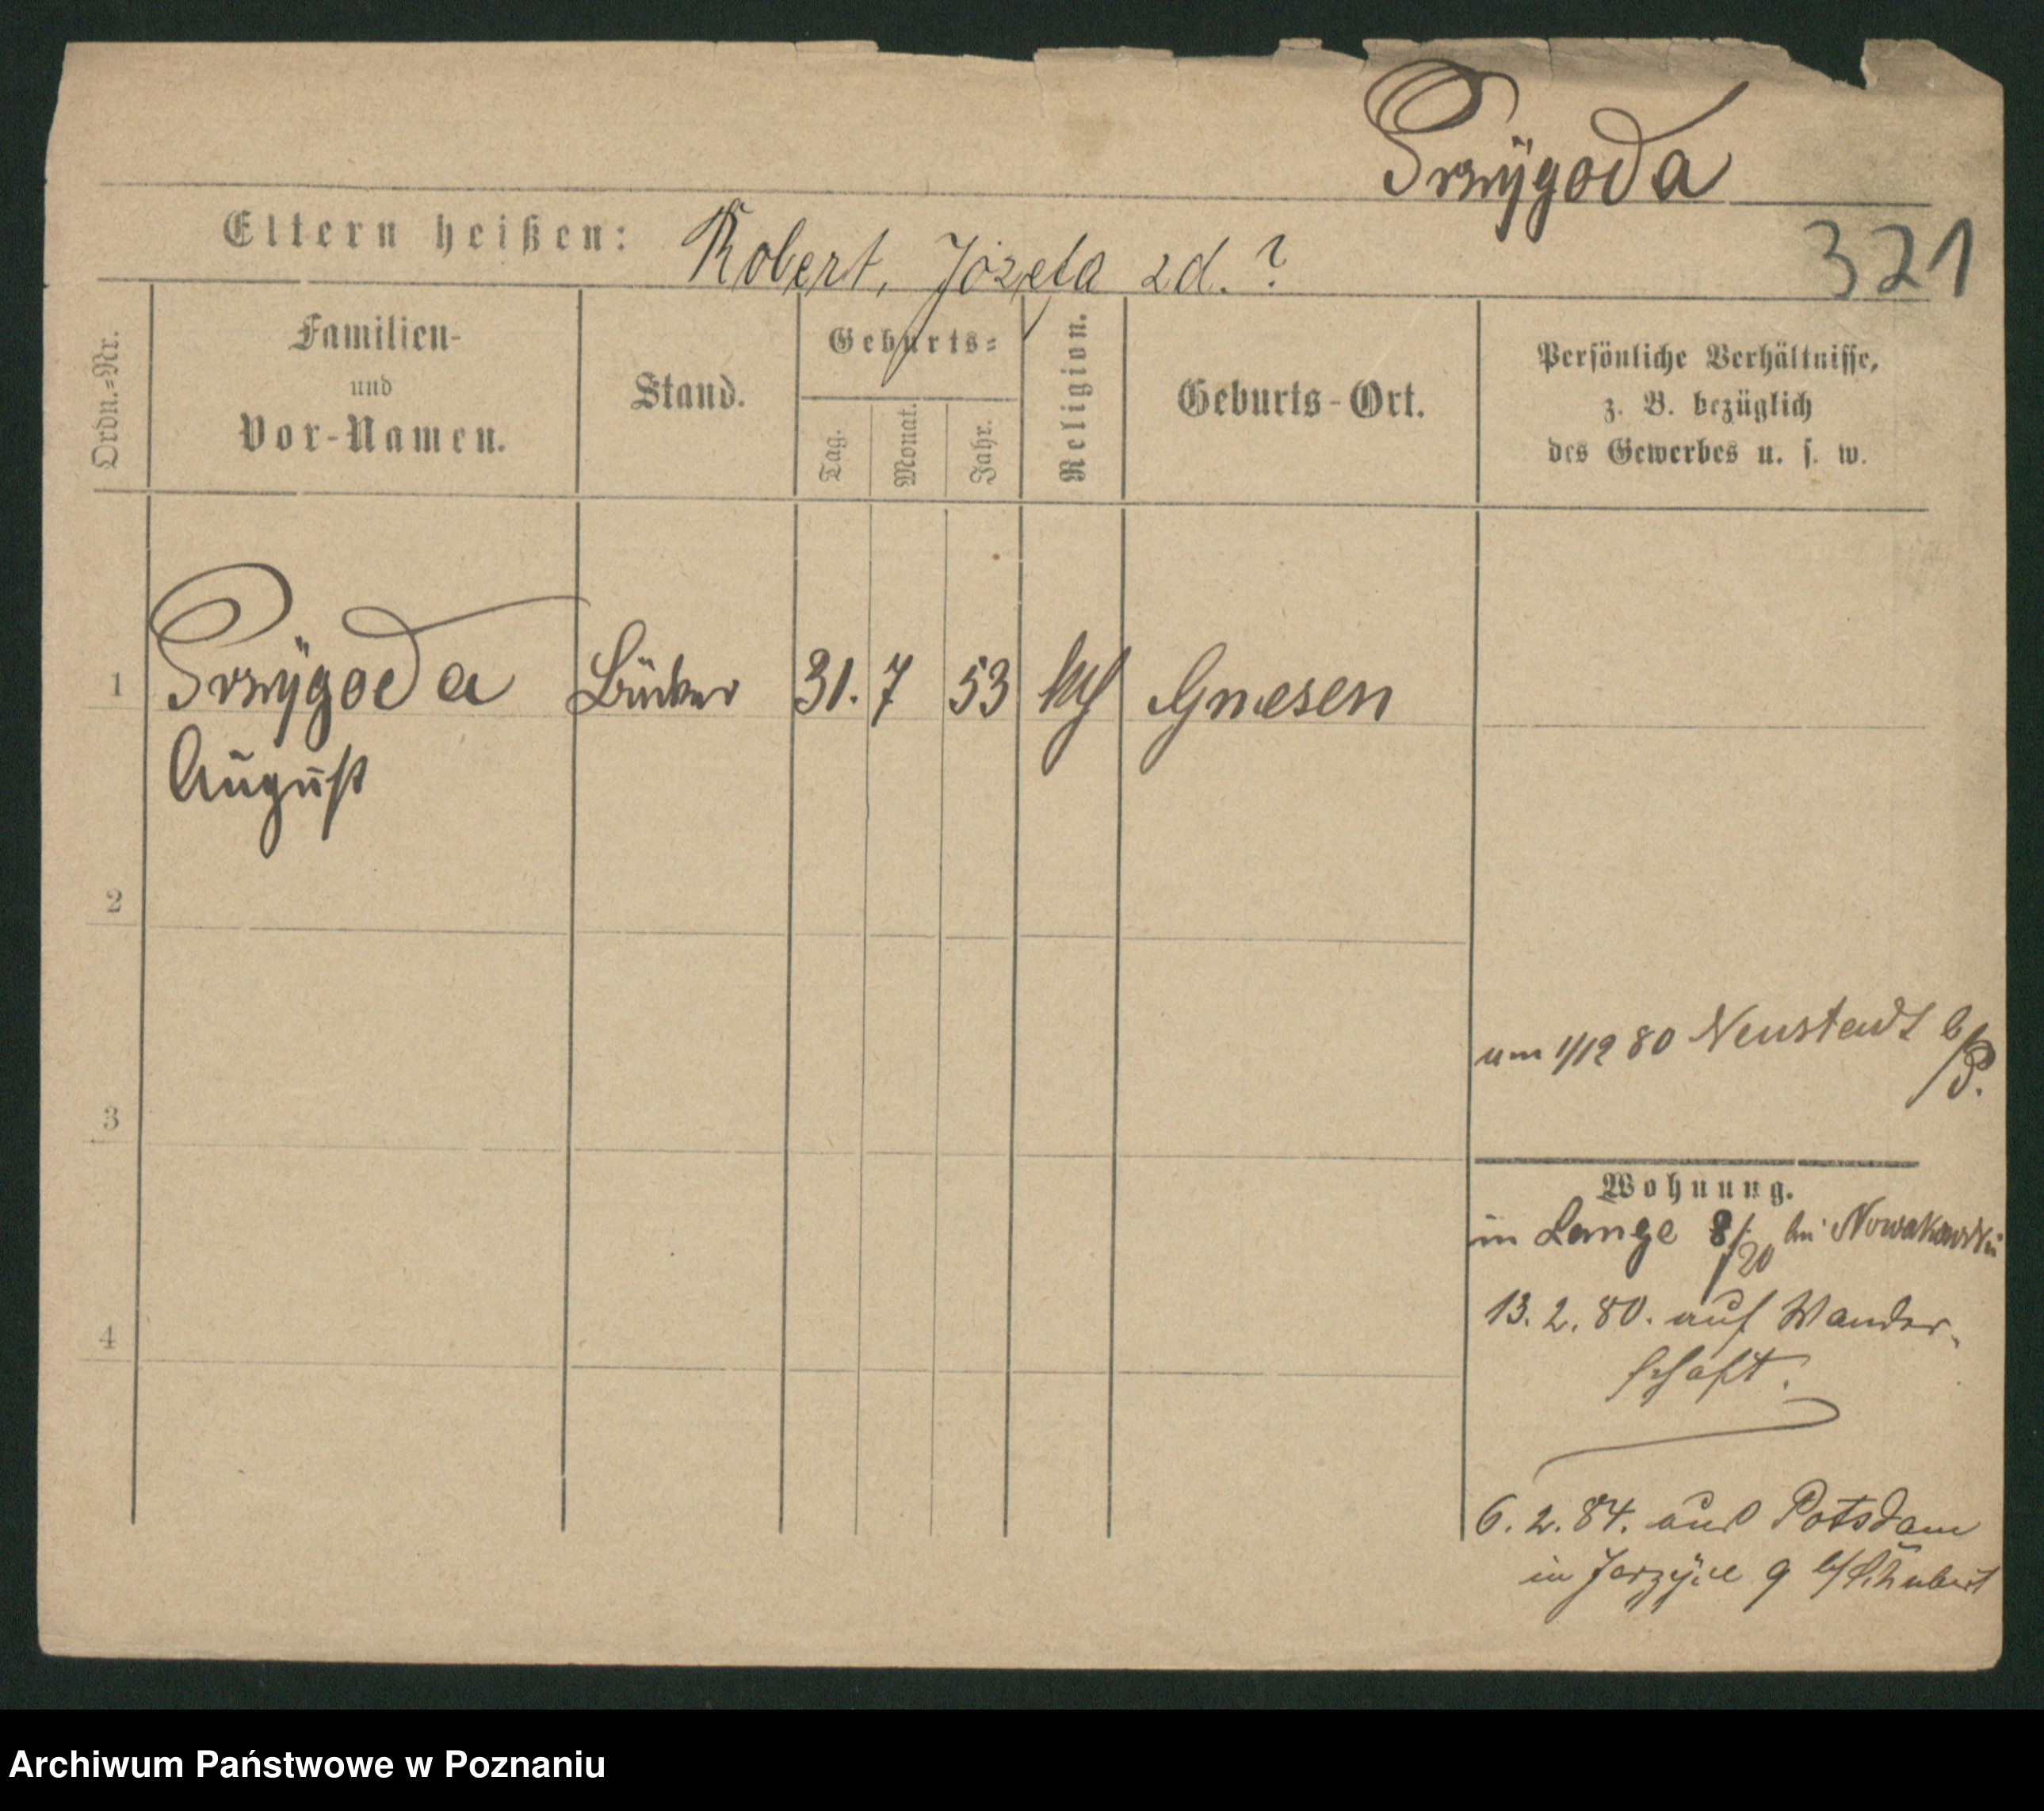 Przÿgoda
321
Eltern heißen: Robert, Józefa zd. ?
Ordn.=Nr.
Familien-
und
Vor-Namen.
Stand.
Geburts=
Tag.
Monat.
Jahr.
Religion.
Geburts-Ort.
Persönliche Verhältnisse,
z. B. bezüglich
des Gewerbes u. s. w.
1 Przÿgoda 31. 7 53 kth Gnesen
August
2
3
4
um 1/12 80 Neustadt b/P.
Wohnung.
in Lange 8/20 bei Nowakowski
13. 2. 80. auf Wander-
schaft.
6. 2. 84. aus Potsdam
in Jerzÿce 9 b/ Schubert
Archiwum Państwowe w Poznaniu